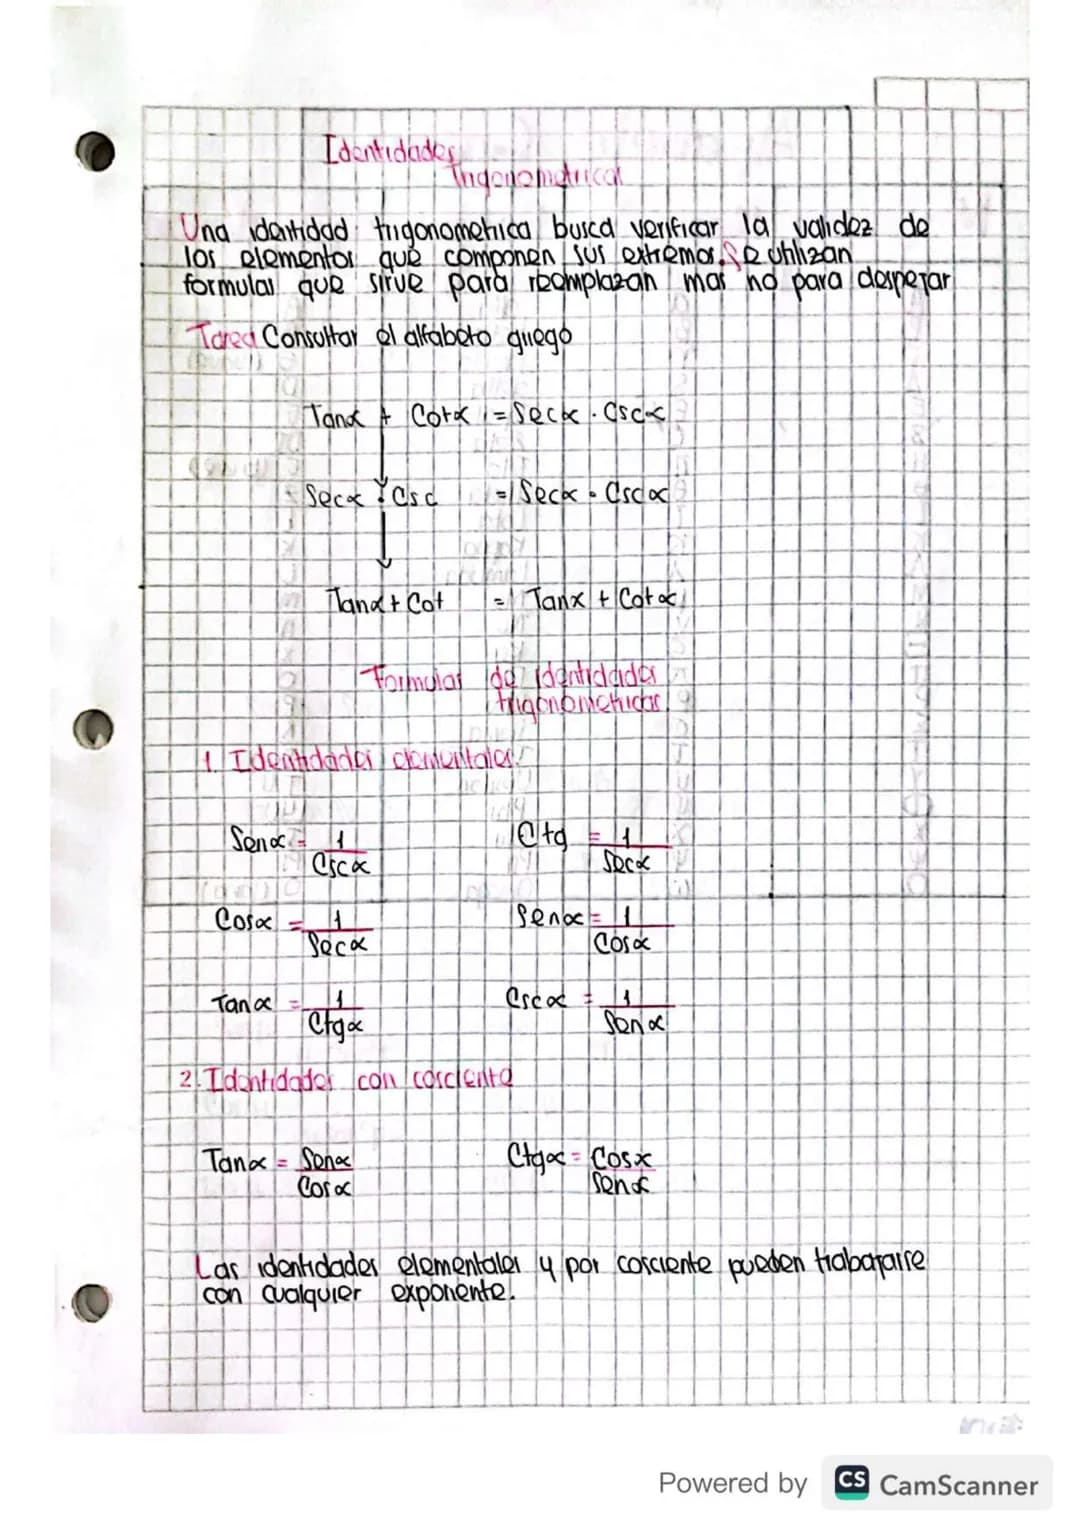 Identidades
Trigonometricas
Una identidad trigonometrica busca verificar la validez de
los elementos que componen sus extremos. Se utilizan
formulas que sirve para reemplazan mas no para despejar
Tarea Consultar el alfabeto griego
Tanα + Cotα = Secα . Cscα
Secα . Csc = Secα . Cscα
Tanα + Cot = Tanα + Cotα
Formulas de identidades
trigonometricas
1. Identidades elementales.
Senα = 1/Cscα Ctg = 1/Secα
Cosα = 1/Secα Senα = 1/Cosα
Tanα = 1/Ctgα Cscα = 1/Senα
2. Identidades con cosciente
Tanα = Senα/Cosα Ctgα = Cosα/Senα
Las identidades elementales y por cosciente pueden trabajarse
con cualquier exponente.
Powered by CS CamScanner